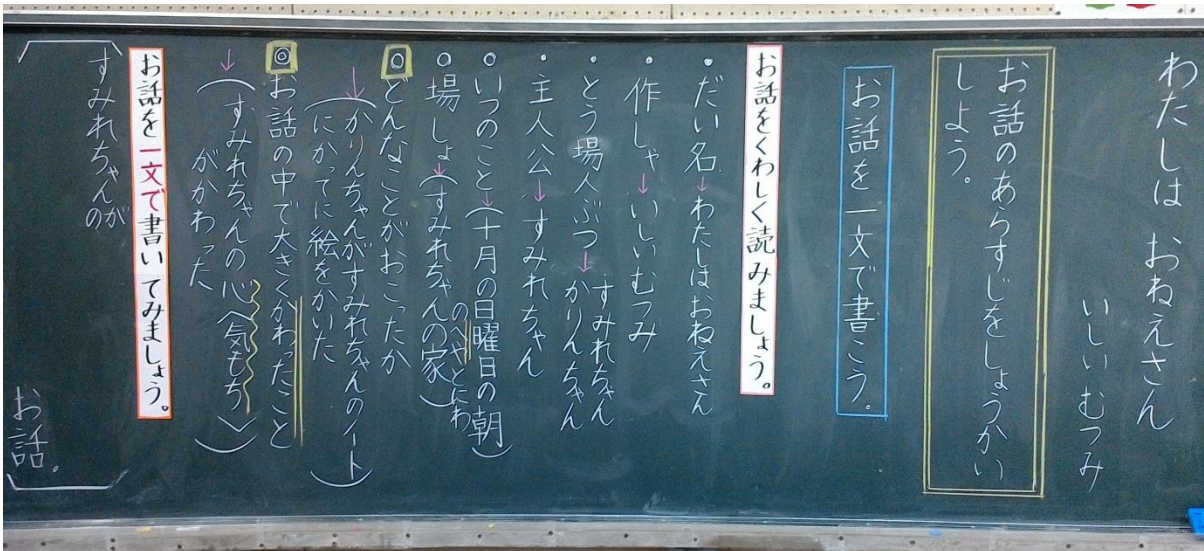 わたしは おねえさん
いしい むつみ
お話のあらすじをしょうかい
しよう。
お話を一文で書こう。
お話をくわしく読みましょう。
・だい名→わたしはおねえさん
・作しゃ→いしいむつみ
・とう場人ぶつ→すみれちゃん
かりんちゃん
・主人公→すみれちゃん
○いつのこと→(十月の日曜日の朝)
○場しょ→(すみれちゃんの家)
のへやとにわ
◎どんなことがおこったか
→(かりんちゃんがすみれちゃんのノート
にかってに絵をかいた)
◎お話の中で大きくかわったこと
→(すみれちゃんの心〈気もち〉
がかわった)
お話を一文で書いてみましょう。
すみれちゃんが
の
お話。